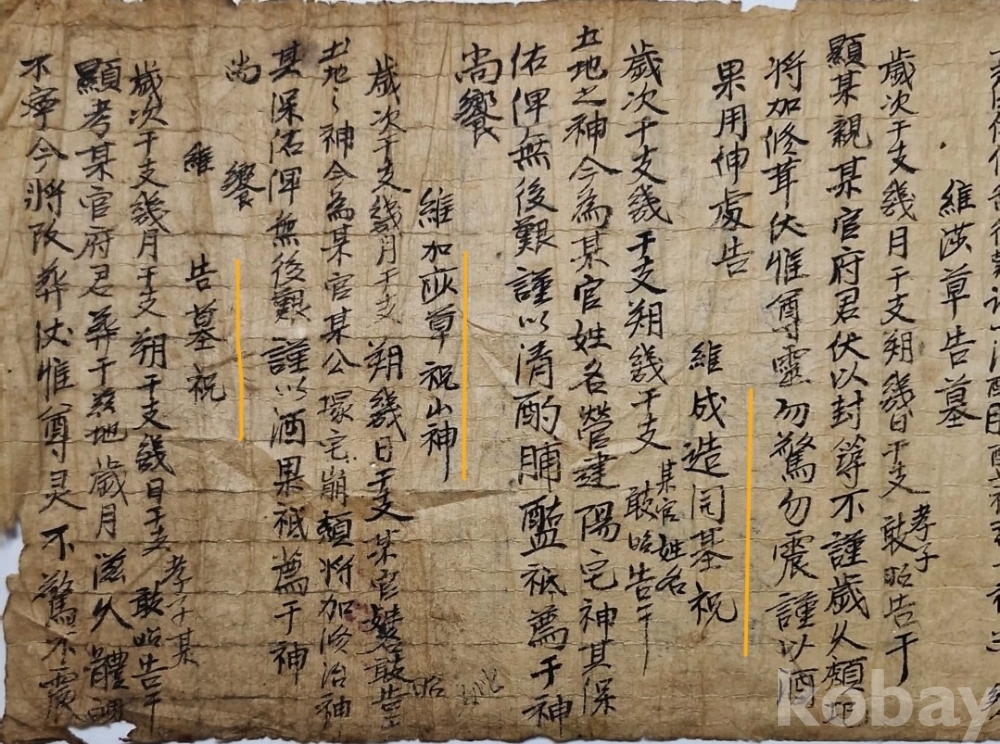 維莎草告墓
歲次干支幾月干支朔幾日干支 孝子 敢昭告于
顯某親某官府君伏以封築不謹歲久頹圮
將加修葺伏惟尊靈勿驚勿震謹以酒
果用伸虔告
維成造開基祝
歲次干支幾干支朔幾干支 某官姓名 敢昭告于
土地之神今為某官姓名營建陽宅神其保
佑俾無後艱謹以清酌脯醢祗薦于神
尚饗
維加灰草祝山神
歲次干支幾月干支 朔幾日干支某官姓某敢昭告
土地之神今為某官某公塚宅崩頹將加修治神
其保佑俾無後艱 謹以酒果祗薦于神
尚 饗
維 告墓祝
歲次干支幾月干支 朔干支幾日干支 孝子某 敢昭告于
顯考某官府君葬于茲地歲月 滋久 體魄
不寧今將改葬伏惟尊灵 不驚不震
kobay